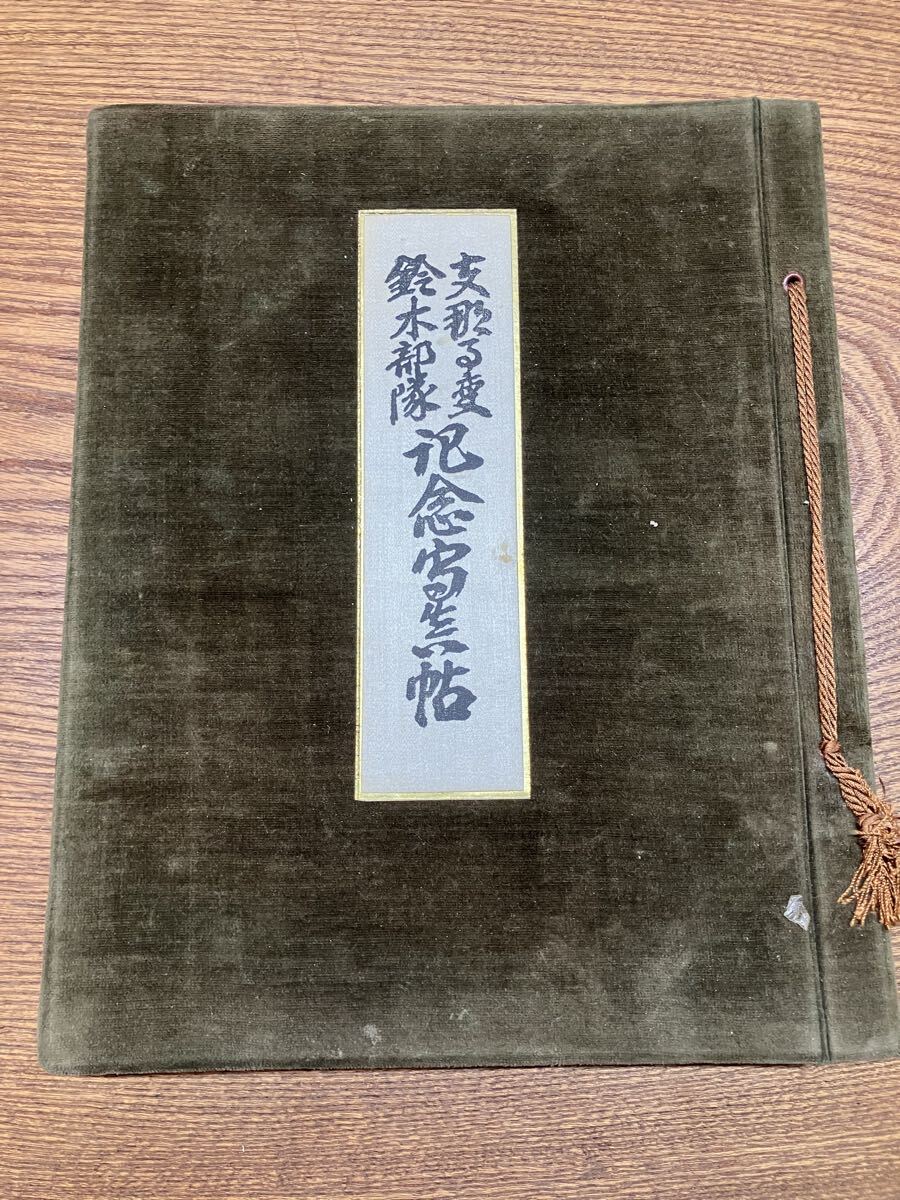 支那事變
鈴木部隊
記念寫真帖